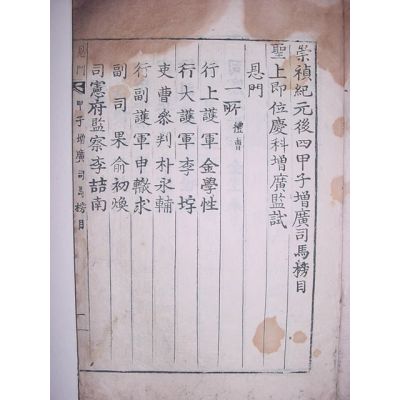 崇禎紀元後四甲子增廣司馬榜目
聖上即位慶科增廣監試
恩門
一所 禮曹
行上護軍金學性
行大護軍李
吏曹叅判朴永輔
行副護軍申轍求
副司果俞初煥
司憲府監察李喆南
恩門 甲子增廣司馬榜目 一